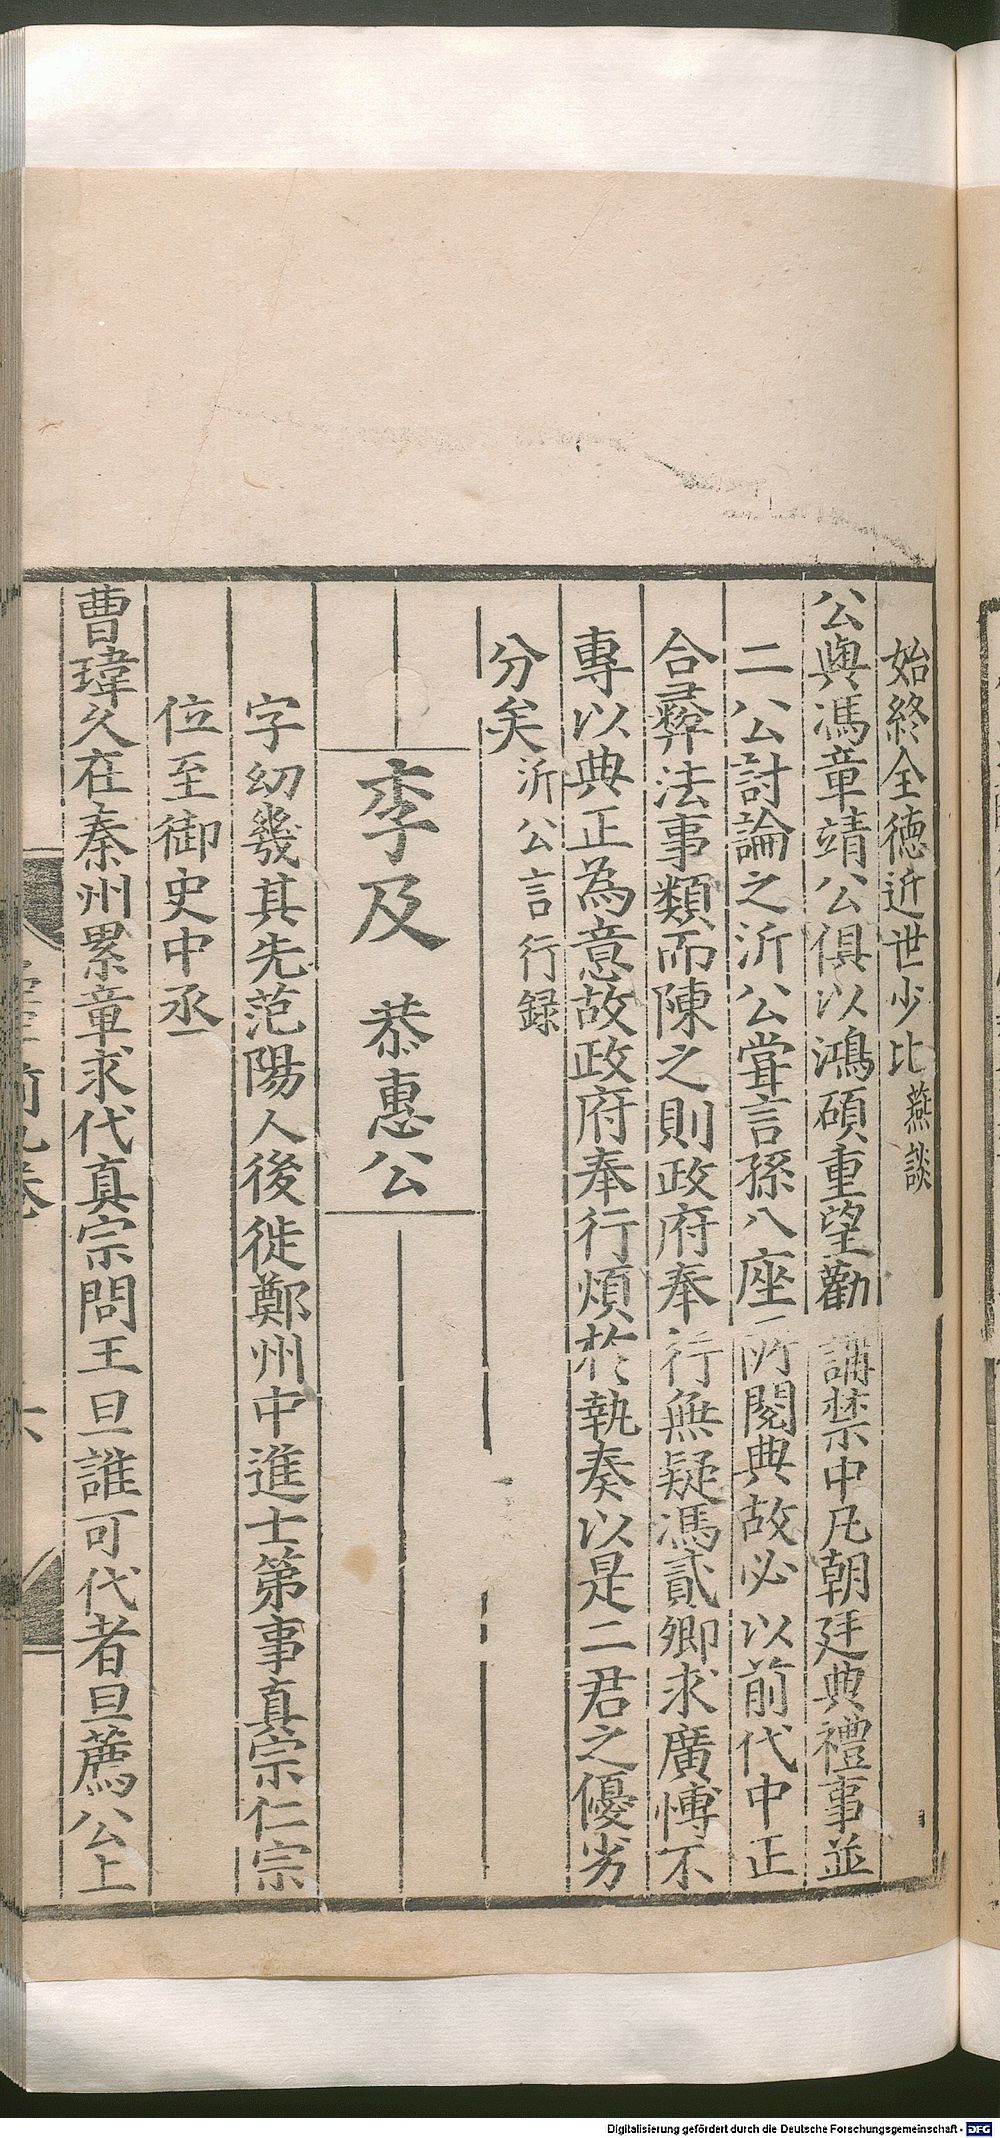 始終全德近世少比燕談
公與馮章靖公俱以鴻碩重望勸講禁中凡朝廷典禮事並
二公討論之沂公嘗言孫八座所閱典故必以前代中正
合彝法事類而陳之則政府奉行無疑馮貳卿求廣愽不
專以典正為意故政府奉行煩於執奏以是二君之優劣
分矣沂公言行録
李及 恭惠公
字幼幾其先范陽人後徙鄭州中進士第事真宗仁宗
位至御史中丞
曹瑋久在秦州累章求代真宗問王旦誰可代者旦薦公上
Digitalisierung gefördert durch die Deutsche Forschungsgemeinschaft - DFG